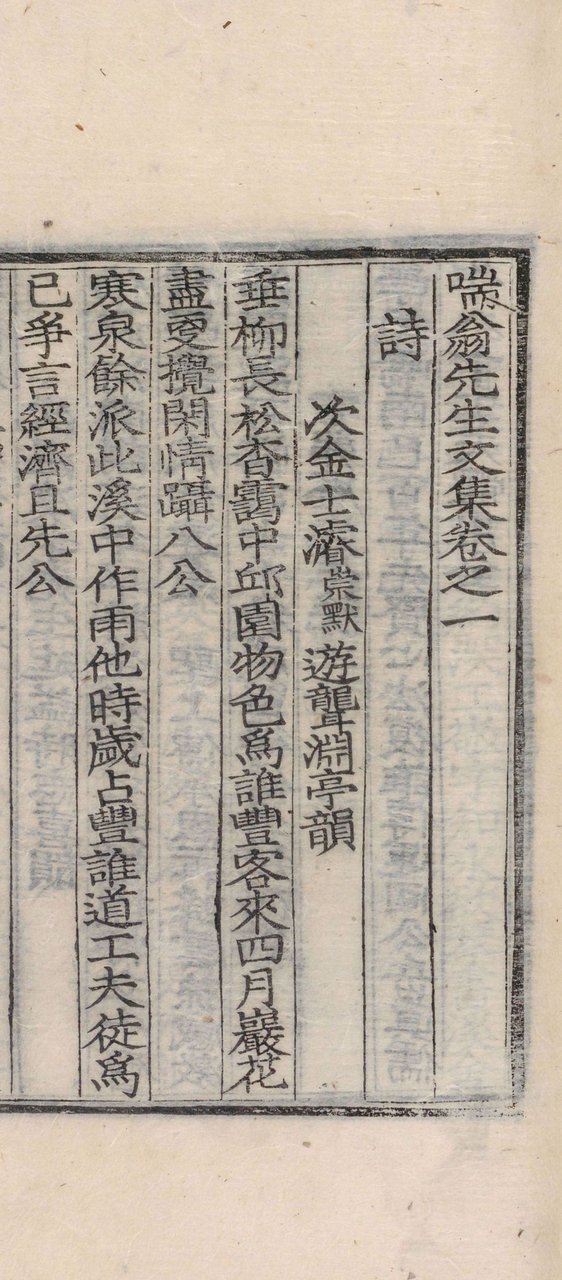 喘翁先生文集卷之一
詩
次金士濬崇默遊聾淵亭韻
垂柳長松杳靄中邱園物色爲誰豐客來四月巖花
盡更攪閑情躡八公
寒泉餘派此溪中作雨他時歲占豐誰道工夫徒爲
已爭言經濟且先公